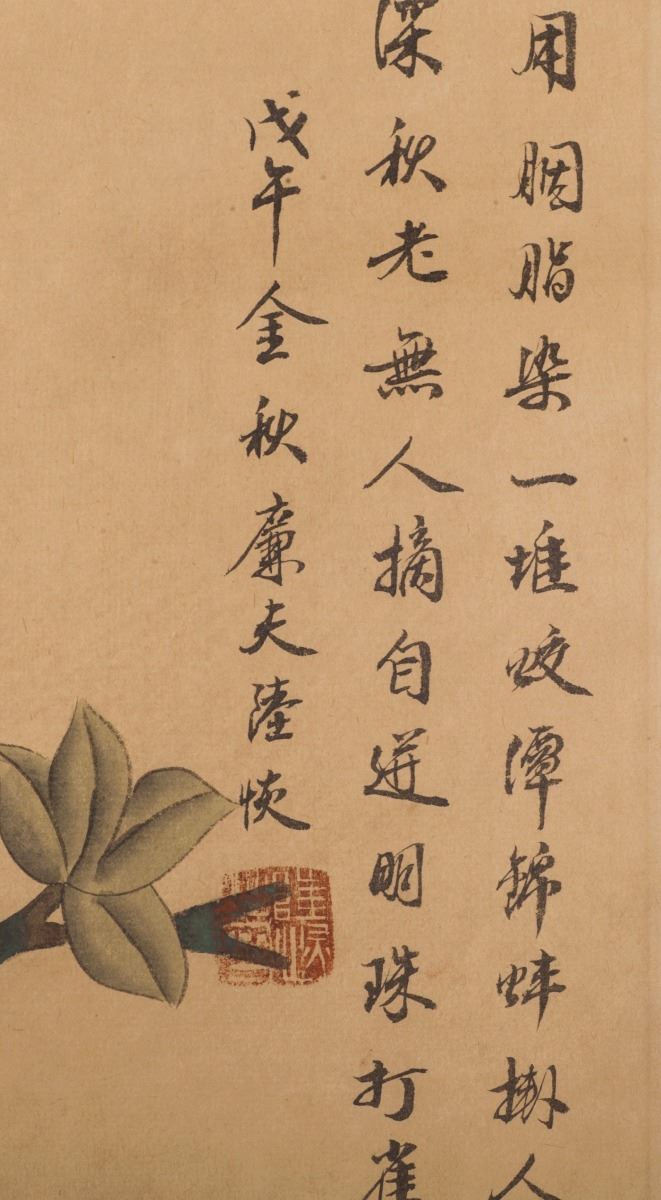 用胭脂染一堆蛟潭錦蚌掛人
深秋老無人摘自迸明珠打雀
戊午金秋廉夫陸恢